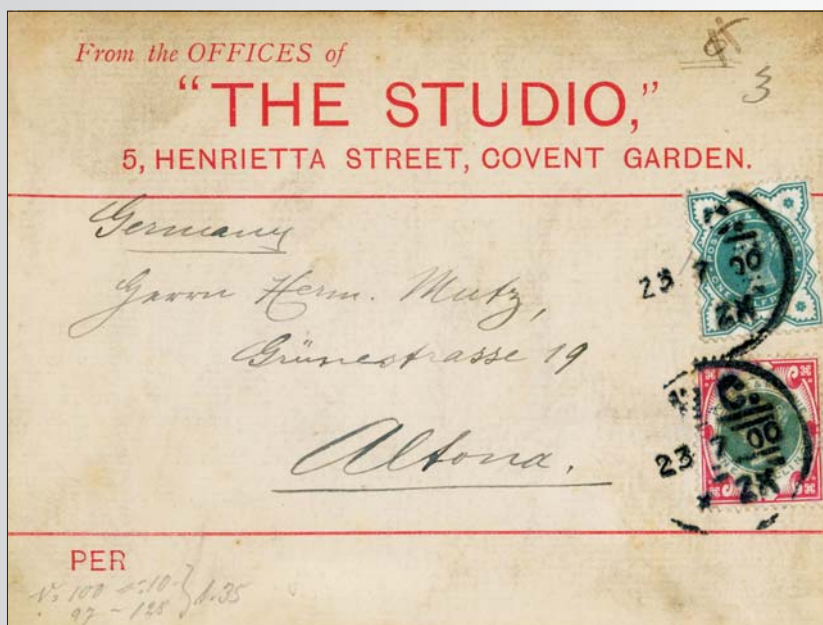 From the OFFICES of
"THE STUDIO,"
5, HENRIETTA STREET, COVENT GARDEN.
3
Germany
Herrn Herm. Mutz,
Grünestrasse 19
Altona.
23 7 00
C.
23 7 00
PER